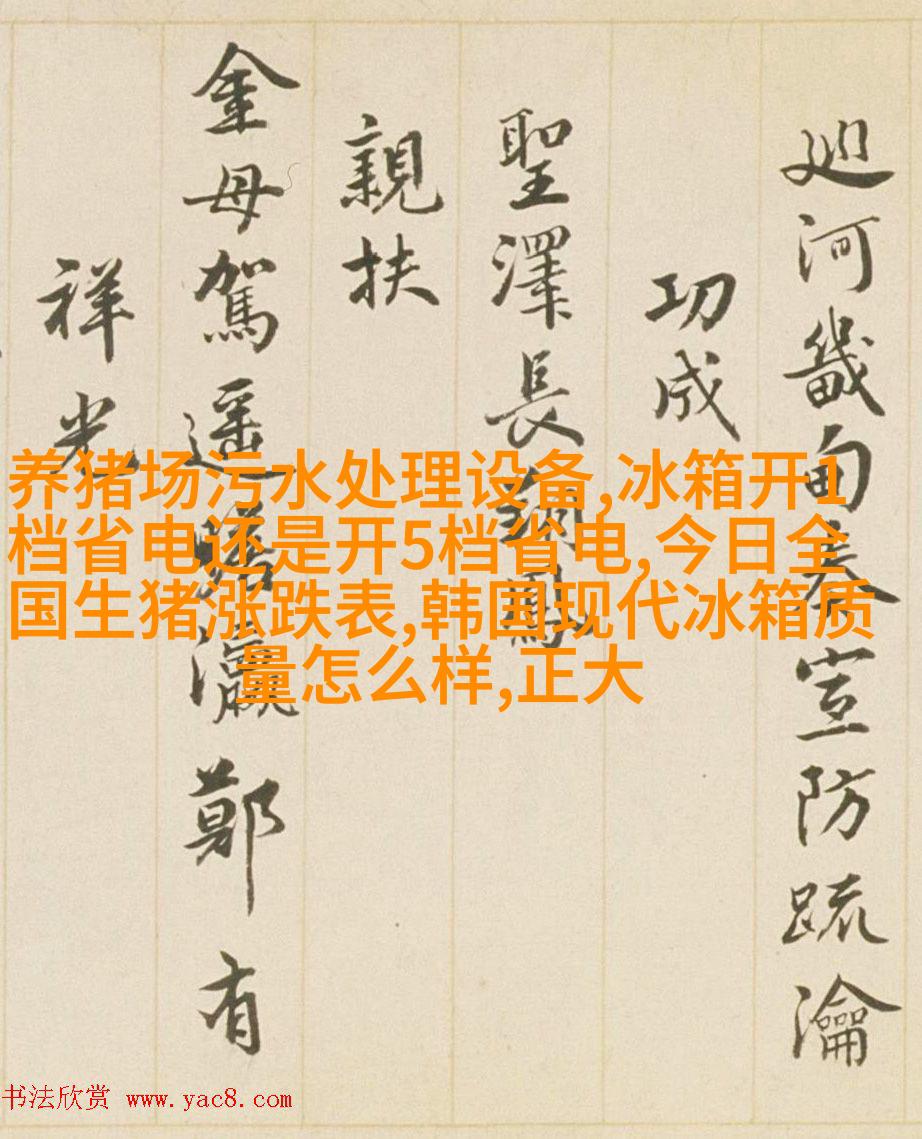 廵河畿甸奏宣防疏瀹
功成
聖澤長鏑鳳
親扶
金母駕遥臨瀛鄭有
祥光
养猪场污水处理设备,冰箱开1
档省电还是开5档省电,今日全
国生猪涨跌表,韩国现代冰箱质
量怎么样,正大
书法欣赏 www.yac8.com